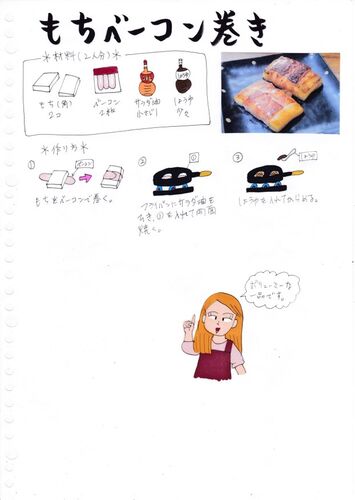 もちベーコン巻き
*材料(2人分)*
もち(角)
2コ
ベーコン
2枚
サラダ油
小さじ1
しょうゆ
少々
*作り方*
①
ベーコン
もちをベーコンで巻く。
②
①
フライパンにサラダ油を
しき、①を入れて両面
焼く。
③
しょうゆ
しょうゆを入れてからめる。
ボリューミーな
一品です。